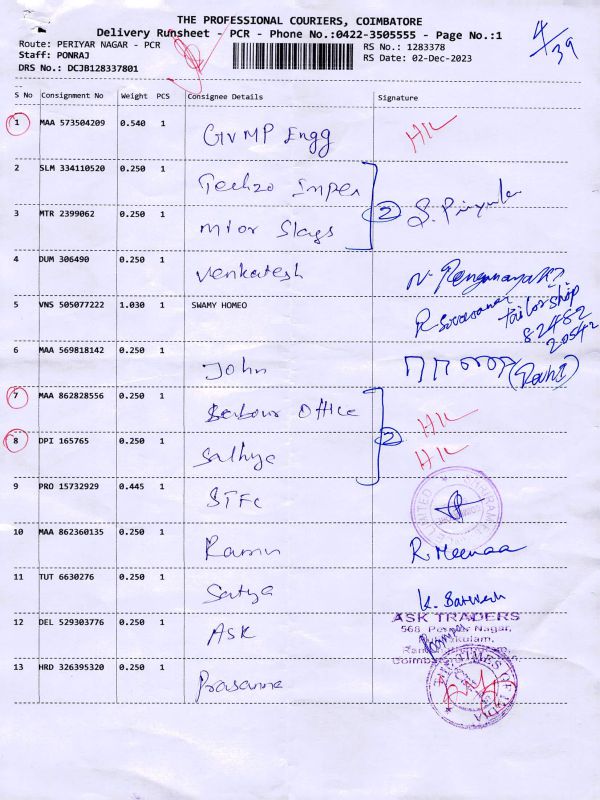 THE PROFESSIONAL COURIERS, COIMBATORE
Delivery Runsheet - PCR - Phone No.:0422-3505555 - Page No.:1
Route: PERIYAR NAGAR - PCR
RS No.: 1283378
Staff: PONRAJ
RS Date: 02-Dec-2023
DRS No.: DCJB128337801
4/39
S No Consignment No Weight PCS Consignee Details Signature
1 MAA 573504209 0.540 1 GVMP Engg H/L
2 SLM 334110520 0.250 1 Techzo Impex
3 MTR 2399062 0.250 1 2 S. Priyanka
4 DUM 306490 0.250 1 Venkatesh
5 VNS 505077222 1.030 1 SWAMY HOMEO
Tailor Shop
82482
20542
6 MAA 569818142 0.250 1 John
7 MAA 862828556 0.250 1 Labour Office H/L
2
8 DPI 165765 0.250 1 Sathya H/L
9 PRO 15732929 0.445 1 STFC
LIMITED
10 MAA 862360135 0.250 1 R. Meenaa
11 TUT 6630276 0.250 1 Satya
12 DEL 529303776 0.250 1 ASK
ASK TRADERS
13 HRD 326395320 0.250 1 Prasanna
THE TIMES OF INDIA